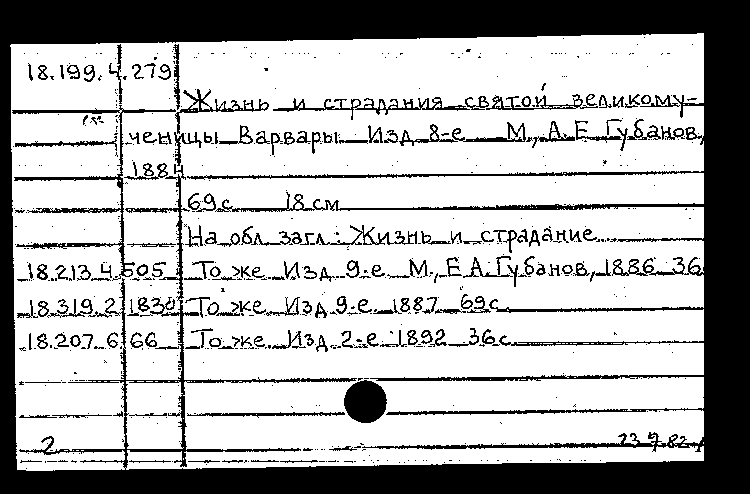 18.199.4.279
Жизнь и страдания святой великому-
ченицы Варвары Изд 8-е М., А. Е Губанов,
1884
69 с 18 см
На обл загл: Жизнь и страдание
18.213.4.505 То же Изд 9-е М., Е А. Губанов, 1886 36
18.319.2.1830 То же Изд 9-е 1887 69 с
18.207.6.66 То же Изд 2-е 1892 36 с
2 23 82